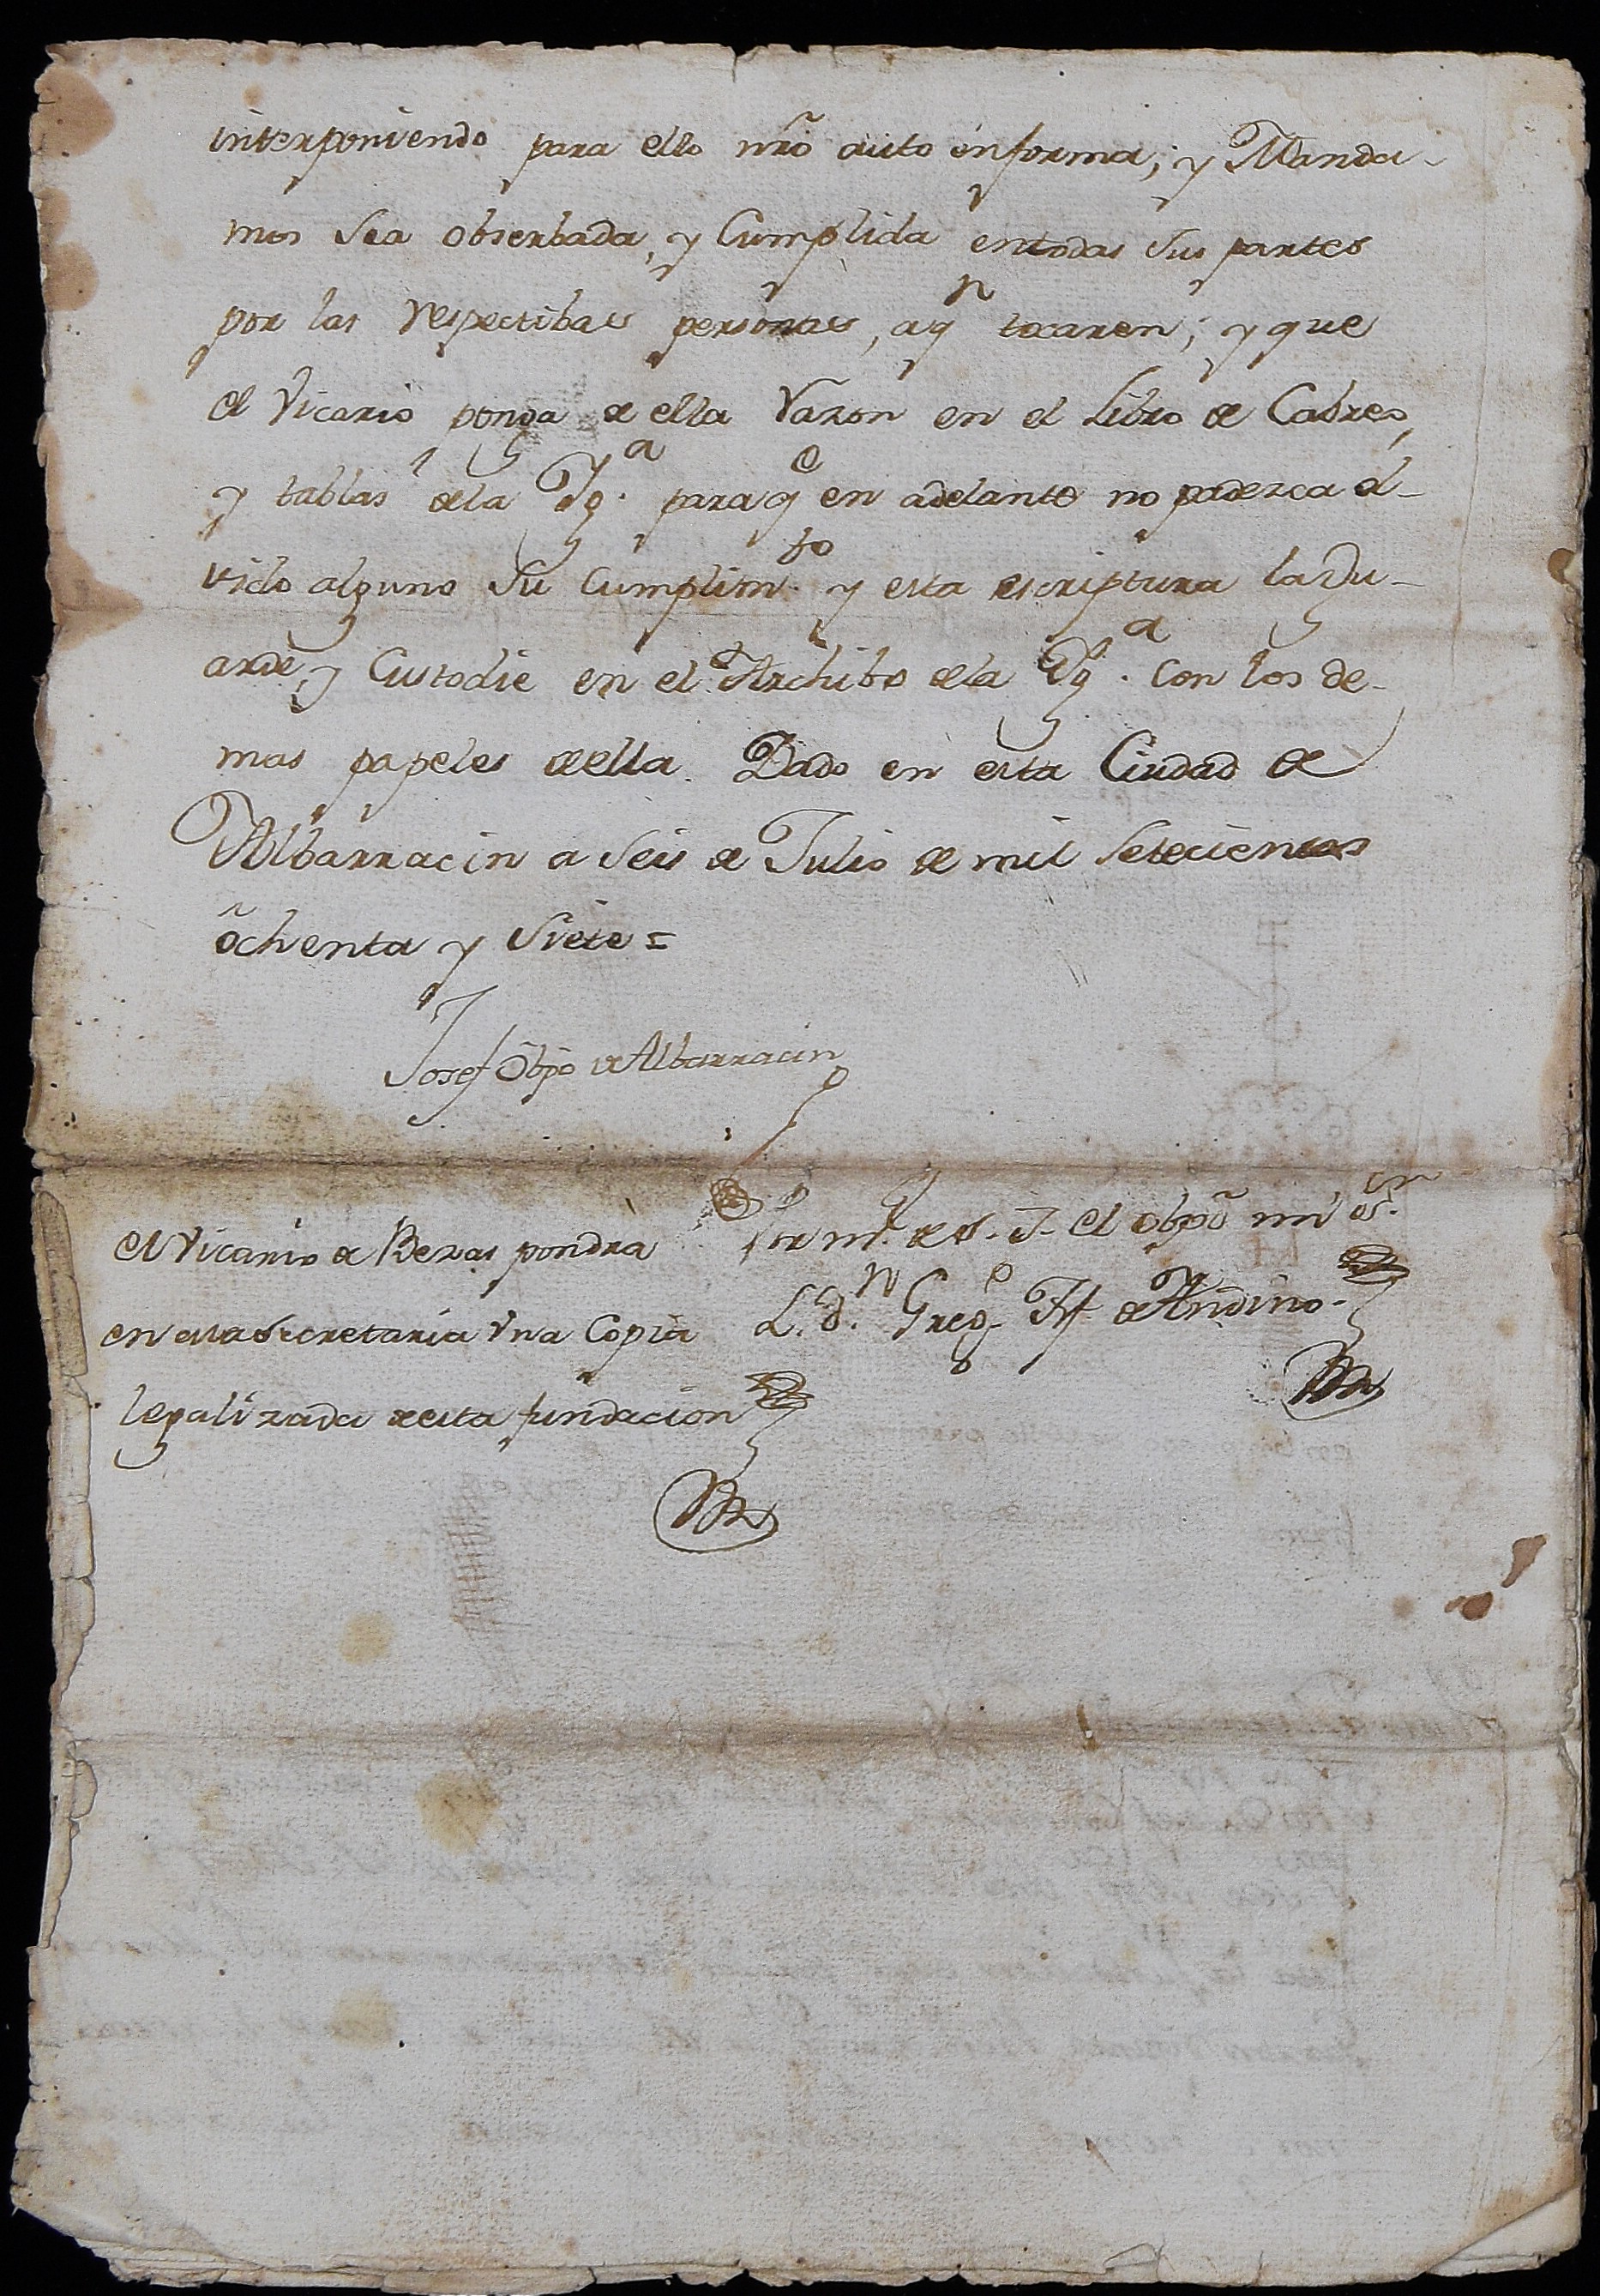 interponiendo para ello nrõ auto enforma; y Manda-
mos sea obserbada, y Cumplida entodas sus partes
por las respectibas personas, aqn tocaren; y que
el Vicario ponga de ella razon en el Libro de Cabreo,
y tablas dela Yga. para qe en adelante no padezca ol-
vido alguno su Cumplimto. y esta escriptura la Gu-
arde, y Custodie en el Archibo dela Yga. con los de-
mas papeles de ella. Dado en esta Ciudad de
Albarracin a seis de Julio de mil setecientos
õchenta y siete =
Josef Obpõ de Albarracin
Por mdo. de S. I. el obpõ mi Sr.
Ldo. Dn. Grego. de Andino.
el Vicario de Bezas pondra
en esta secretaria vna Copia
legalizada de esta fundacion